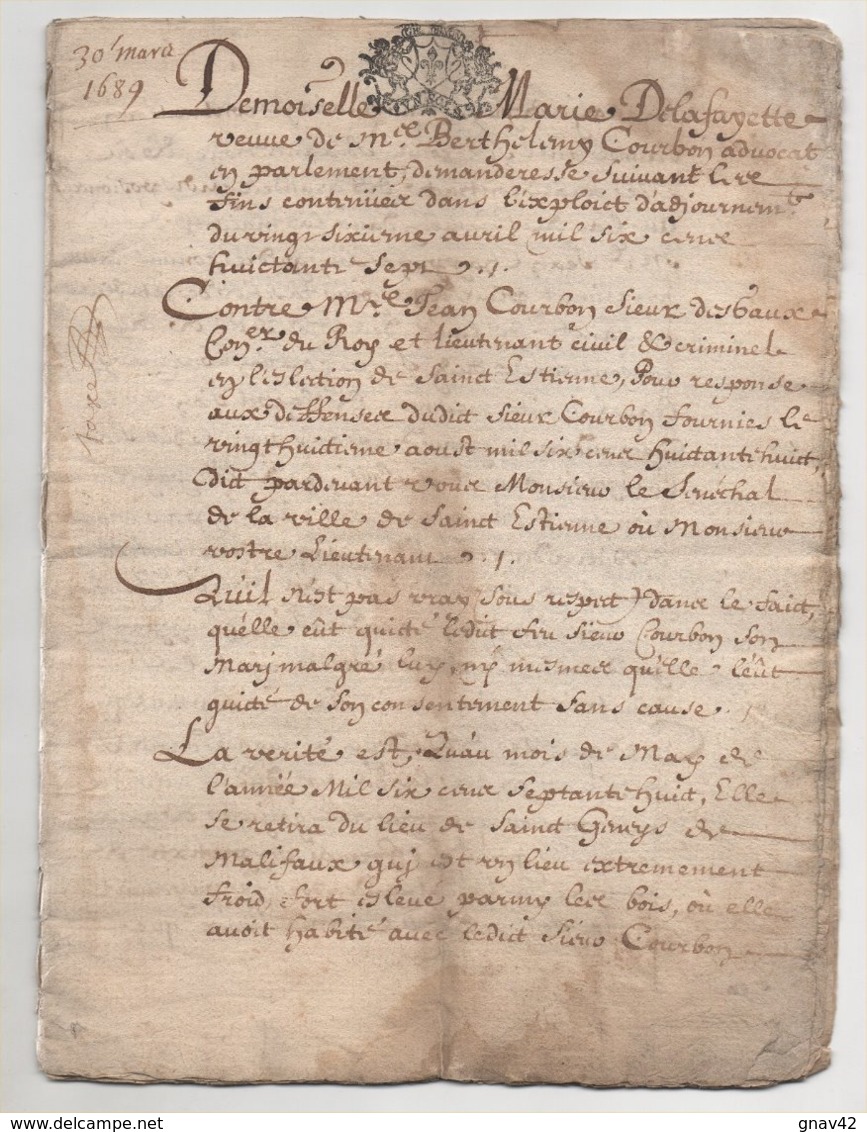 30.e mars
1689
Demoiselle Marie Delafayette
veuve de M.e Berthelemy Courbon advocat
en parlement, demanderesse suivant les
fins contenües dans l'exploict d'adjournem.t
du vingt sixieme avril mil six cens
huictante sept ./.
Contre M.e Jean Courbon sieur des Gaux
Con.er du Roy et lieutenant civil & criminel
en l'eslection de Sainct Estienne, Pour response
aux deffenses dudict sieur Courbon fournies le
vingt huictieme aoust mil six cens huictante huict,
dict pardevant vous Monsieur le Senéchal
de la ville de Sainct Estienne où Monsieur
vostre Lieutenant ./.
taxé
Quil n'est pas vray (sous respect) dans le faict,
qu'elle eût quicté ledict feu sieur Courbon son
Marj malgré luy, ny mesmes qu'elle l'eût
quicté de son consentement sans cause ./
La verité est, Qu'au mois de May de
l'année Mil six cens septante huict, Elle
se retira du lieu de Sainct Geneys de
Malifaux quj est un lieu extremement
froid, fort eslevé parmy les bois, où elle
avoit habité avec ledict sieur Courbon
delcampe.net
gnav42